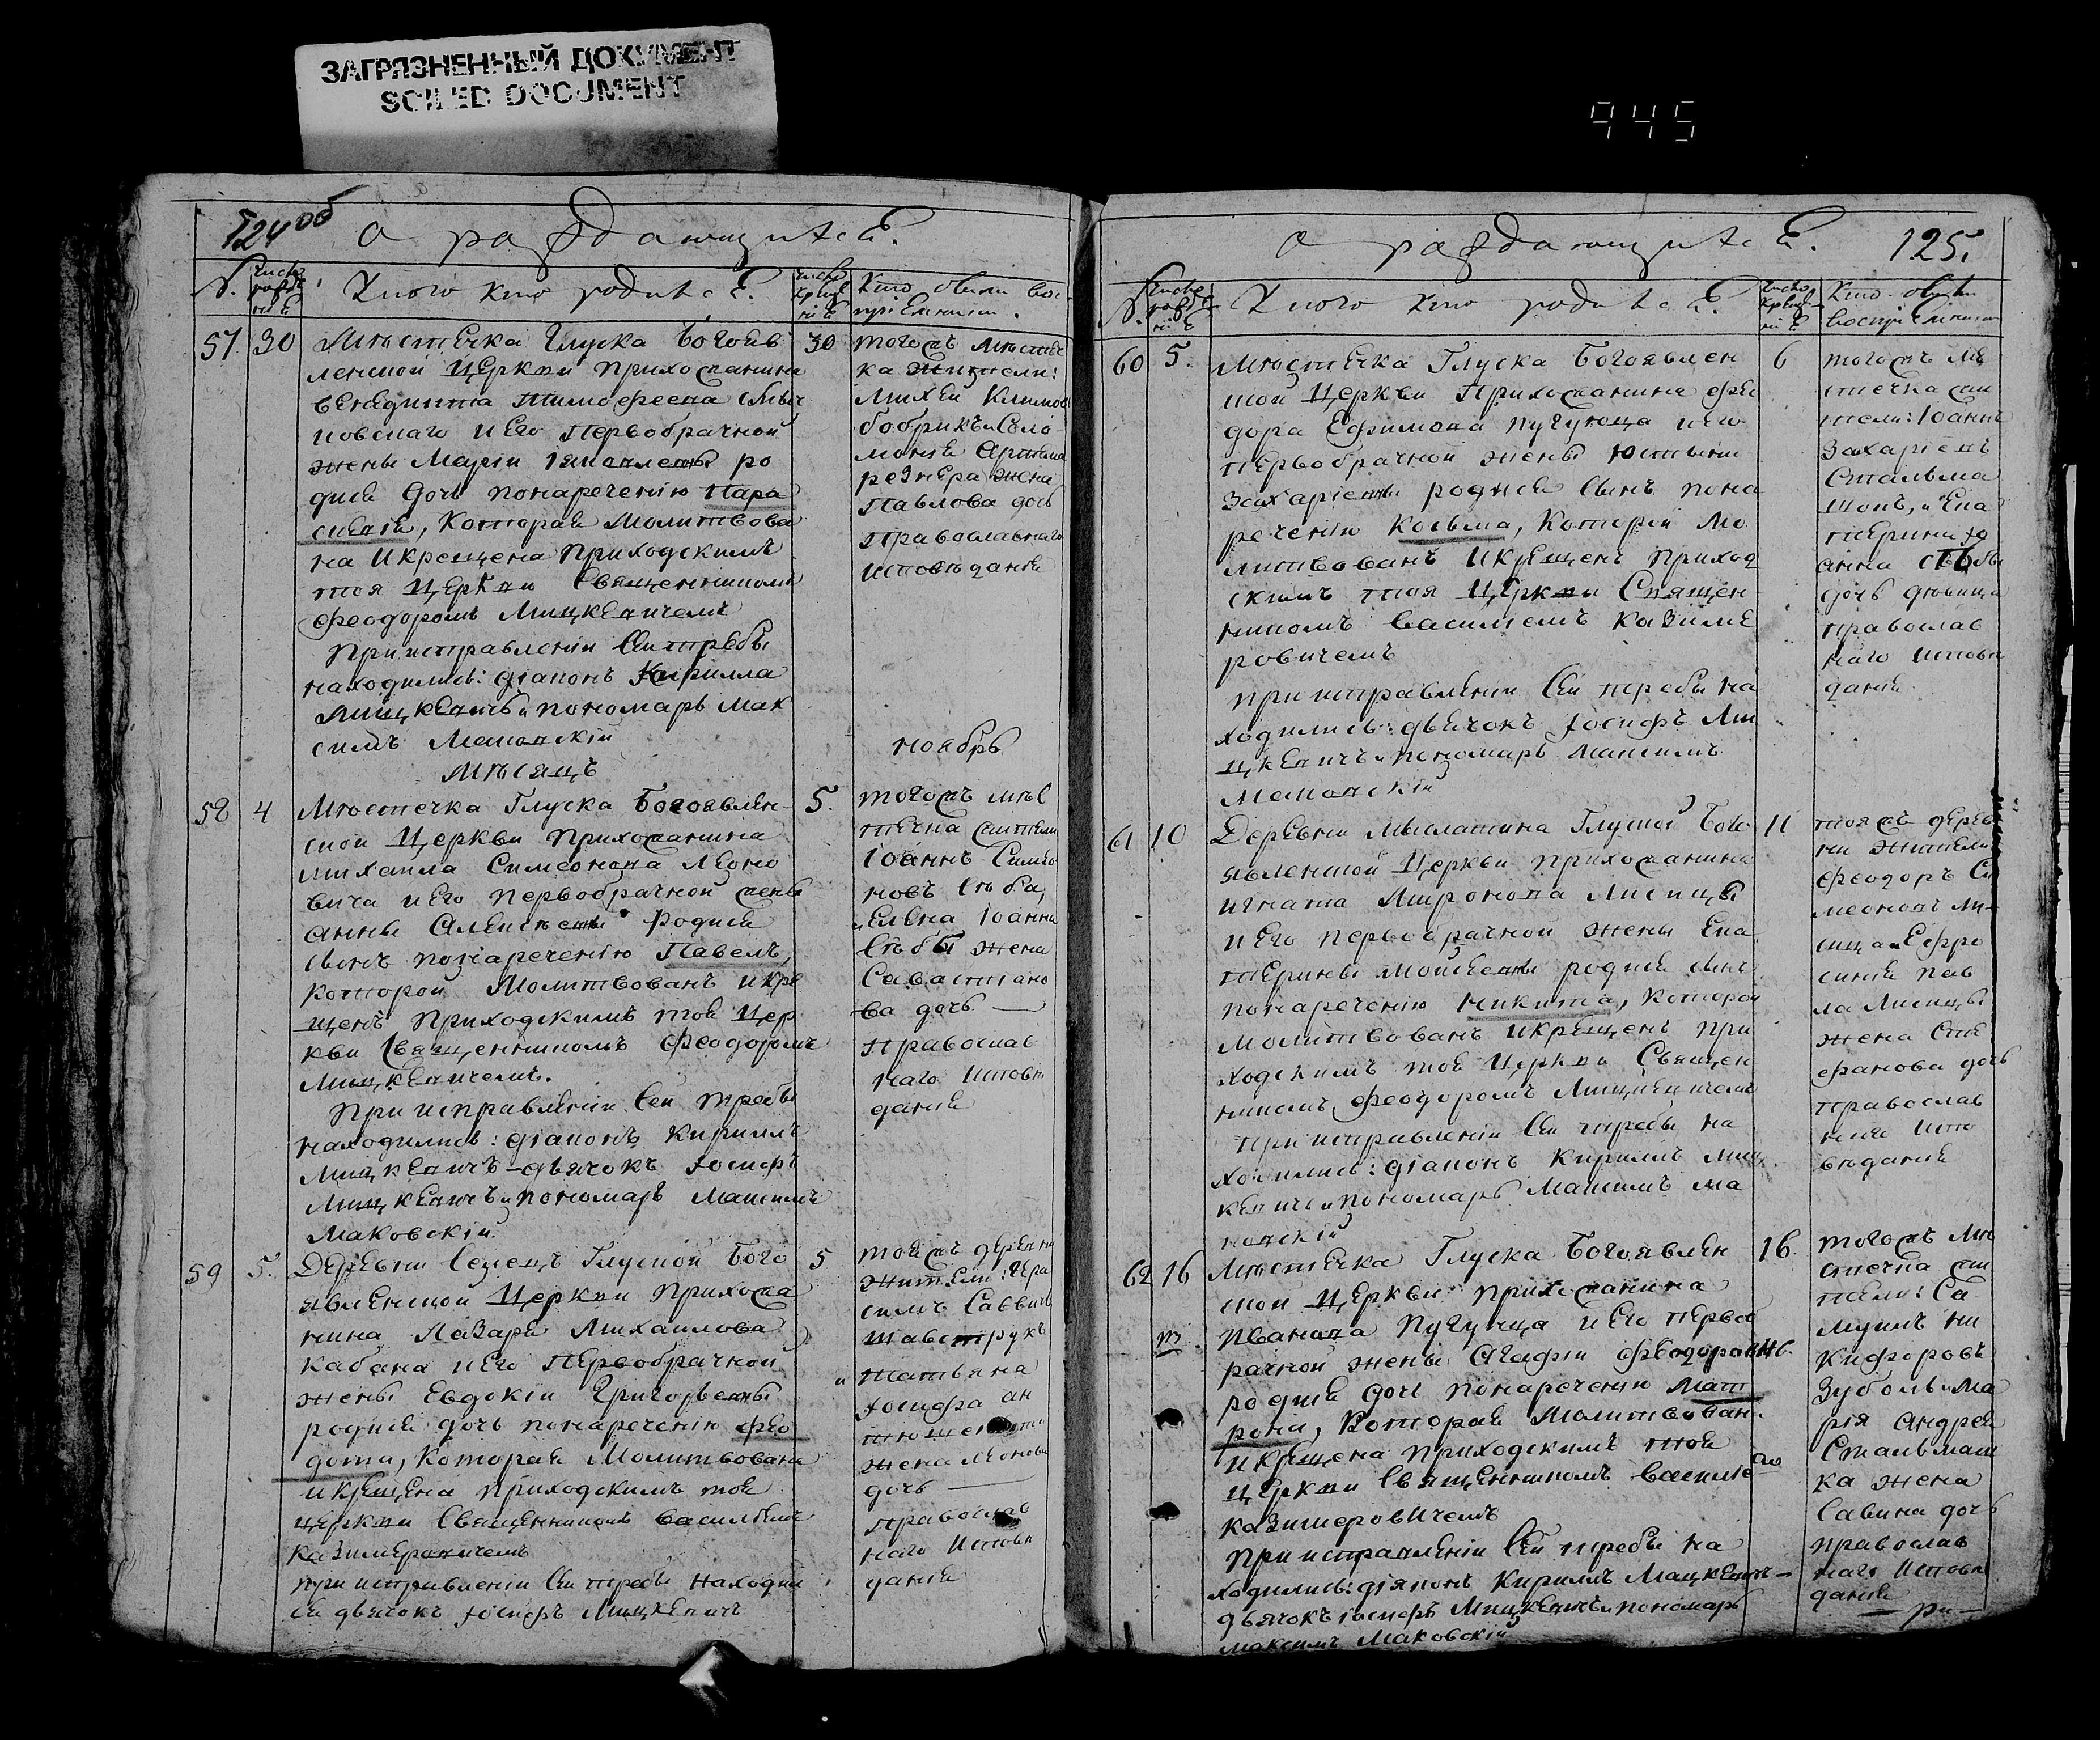 ЗАГРЯЗНЕННЫЙ ДОКУМЕНТ
SOILED DOCUMENT
445
124об
О раждающихся.
№. Число рожде нія
У кого кто родился.
Число креще нія
Кто были вос пріемники.
57. 30
Мѣстечка Глуска Богояв
ленской Церкви прихожанина
Бенедикта Тимофеева
новскаго и его первобрачной
жены Маріи родися
дочь по нареченію Пара
скевія, которая молитвова
на и крещена приходскимъ
тоя Церкви Священникомъ
Феодоромъ Мицкевичемъ
При исправленіи сей требы
находились: діаконъ Кирилла
Мицкевичъ и пономарь Мак
симъ Маковскій
30
тогожъ мѣстеч
ка жители:
Михей Климовъ
Бобрикъ и Соло
монія Артема
жена
Павлова дочь
православнаго
исповѣданія
Мѣсяцъ
ноябрь
58 4
Мѣстечка Глуска Богоявлен
ской Церкви прихожанина
Михаила Симеонова Леоно
вича и его первобрачной жены
Анны Алексѣевны родися
сынъ по нареченію Павелъ,
которой молитвованъ и кре
щенъ приходскимъ тоя Цер
кви Священникомъ Феодоромъ
Мицкевичемъ.
При исправленіи сей требы
находились: діаконъ Кириллъ
Мицкевичъ дьячокъ Іосифъ
Мицкевичъ и пономарь Максимъ
Маковскій
5.
тогожъ мѣс
течка жители
Іоаннъ Симео
новъ
и Елена Іоанна
жена
Севастіано
ва дочь
православ
наго исповѣ
данія
59 5.
Деревни Глуской Бого
явленской Церкви прихожа
нина Лазаря Михаилова
Кабана и его первобрачной
жены Евдокіи Григорьевны
родися дочь по нареченію Фео
дота, которая молитвована
и крещена приходскимъ тоя
церкви Священникомъ Василіемъ
Казимеровичемъ
при исправленіи сей требы находил
ся дьячокъ Іосифъ Мицкевичъ
5
тояжъ деревни
жители: Гера
симъ Саввичъ
и Татьяна
Іосифа
жена Леонова
дочь
православ
наго исповѣ
данія
О раждающихся.
125.
№. Число рожде нія
У кого кто родился.
Число креще нія
Кто были воспріемники
60 5.
Мѣстечка Глуска Богоявлен
ской Церкви Прихожанина Фео
дора Ефимова Пугунца и его
первобрачной жены Юстыни
Захаріевны родися сынъ по на
реченію Косьма, которій мо
литвованъ и крещенъ приход
скимъ тоя Церкви Священ
никомъ Василіемъ Казиме
ровичемъ
при исправленіи сей требы на
ходились: дьячокъ Іосифъ Ми
цкевичъ и пономарь Максимъ
Маковскій
6
тогожъ мѣ
стечка жи
тели: Іоаннъ
Захаріевъ
Стальма
шокъ, и Ека
терина Іо
анна
дочь дѣвица
православ
наго исповѣ
данія
61 10
Деревни Мыслотина Глуской Бого
явленской Церкви прихожанина
Игната Миронова Лисицы
и его первобрачной жены Ека
терины Моисеевны родися сынъ
по нареченію Никита, которой
молитвованъ и крещенъ при
ходскимъ тоя Церкви Священ
никомъ Феодоромъ Мицкевичемъ
При исправленіи сей требы на
ходились: діаконъ Кириллъ Миц
кевичъ и пономарь Максимъ Ма
ковскій
11
тояжъ дерев
ни жители
Феодоръ Си
меоновъ Ли
сица и Ефро
синія Пав
ла Лисицы
жена Сте
фанова дочь
православ
нія испо
вѣданія
62 16
Мѣстечка Глуска Богоявлен
ской Церкви прихожанина
Иванова Пугунца и его первоб
рачной жены Агафіи Феодоровны
родися дочь по нареченію Мат
рона, которая молитвована
и крещена приходскимъ тоя
Церкви Священникомъ Василіе
Казимеровичемъ
При исправленіи сей требы на
ходились: діаконъ Кириллъ Мицкевичъ
дьячокъ Іосифъ Мицкевичъ и пономарь
Максимъ Маковскій
16.
тогожъ мѣ
стечка жи
тели: Са
муилъ Ни
кифоровъ
Зуболь и Ма
рія Андрея
Стальмаш
ка жена
Савина дочь
православ
наго исповѣ
данія